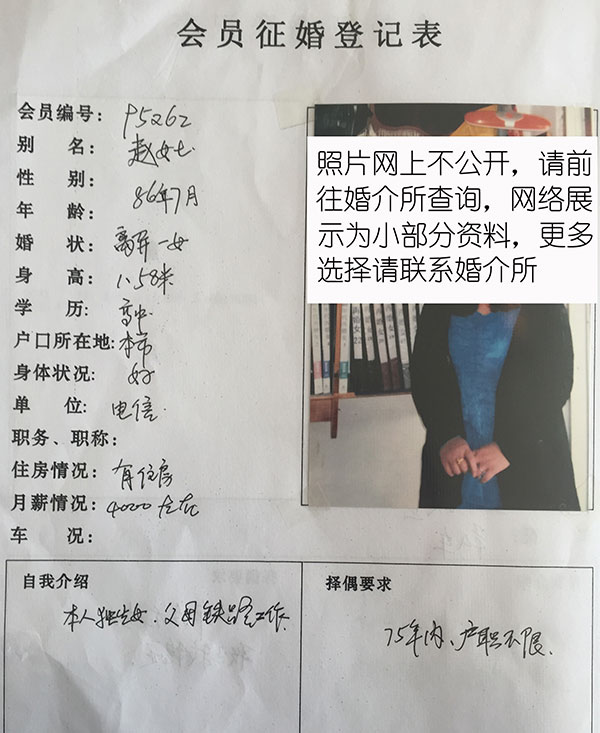 会员征婚登记表
会员编号: P5262
别 名: 赵女士
性 别:
年 龄: 86年7月
婚 状: 离异一女
身 高: 1.58米
学 历: 高中
户口所在地: 本市
身体状况: 好
单 位: 电信
职务、职称:
住房情况: 有住房
月薪情况: 4000左右
车 况:
照片网上不公开，请前
往婚介所查询，网络展
示为小部分资料，更多
选择请联系婚介所
自我介绍
本人独生女、父母铁路工作.
择偶要求
75年内、户职不限.